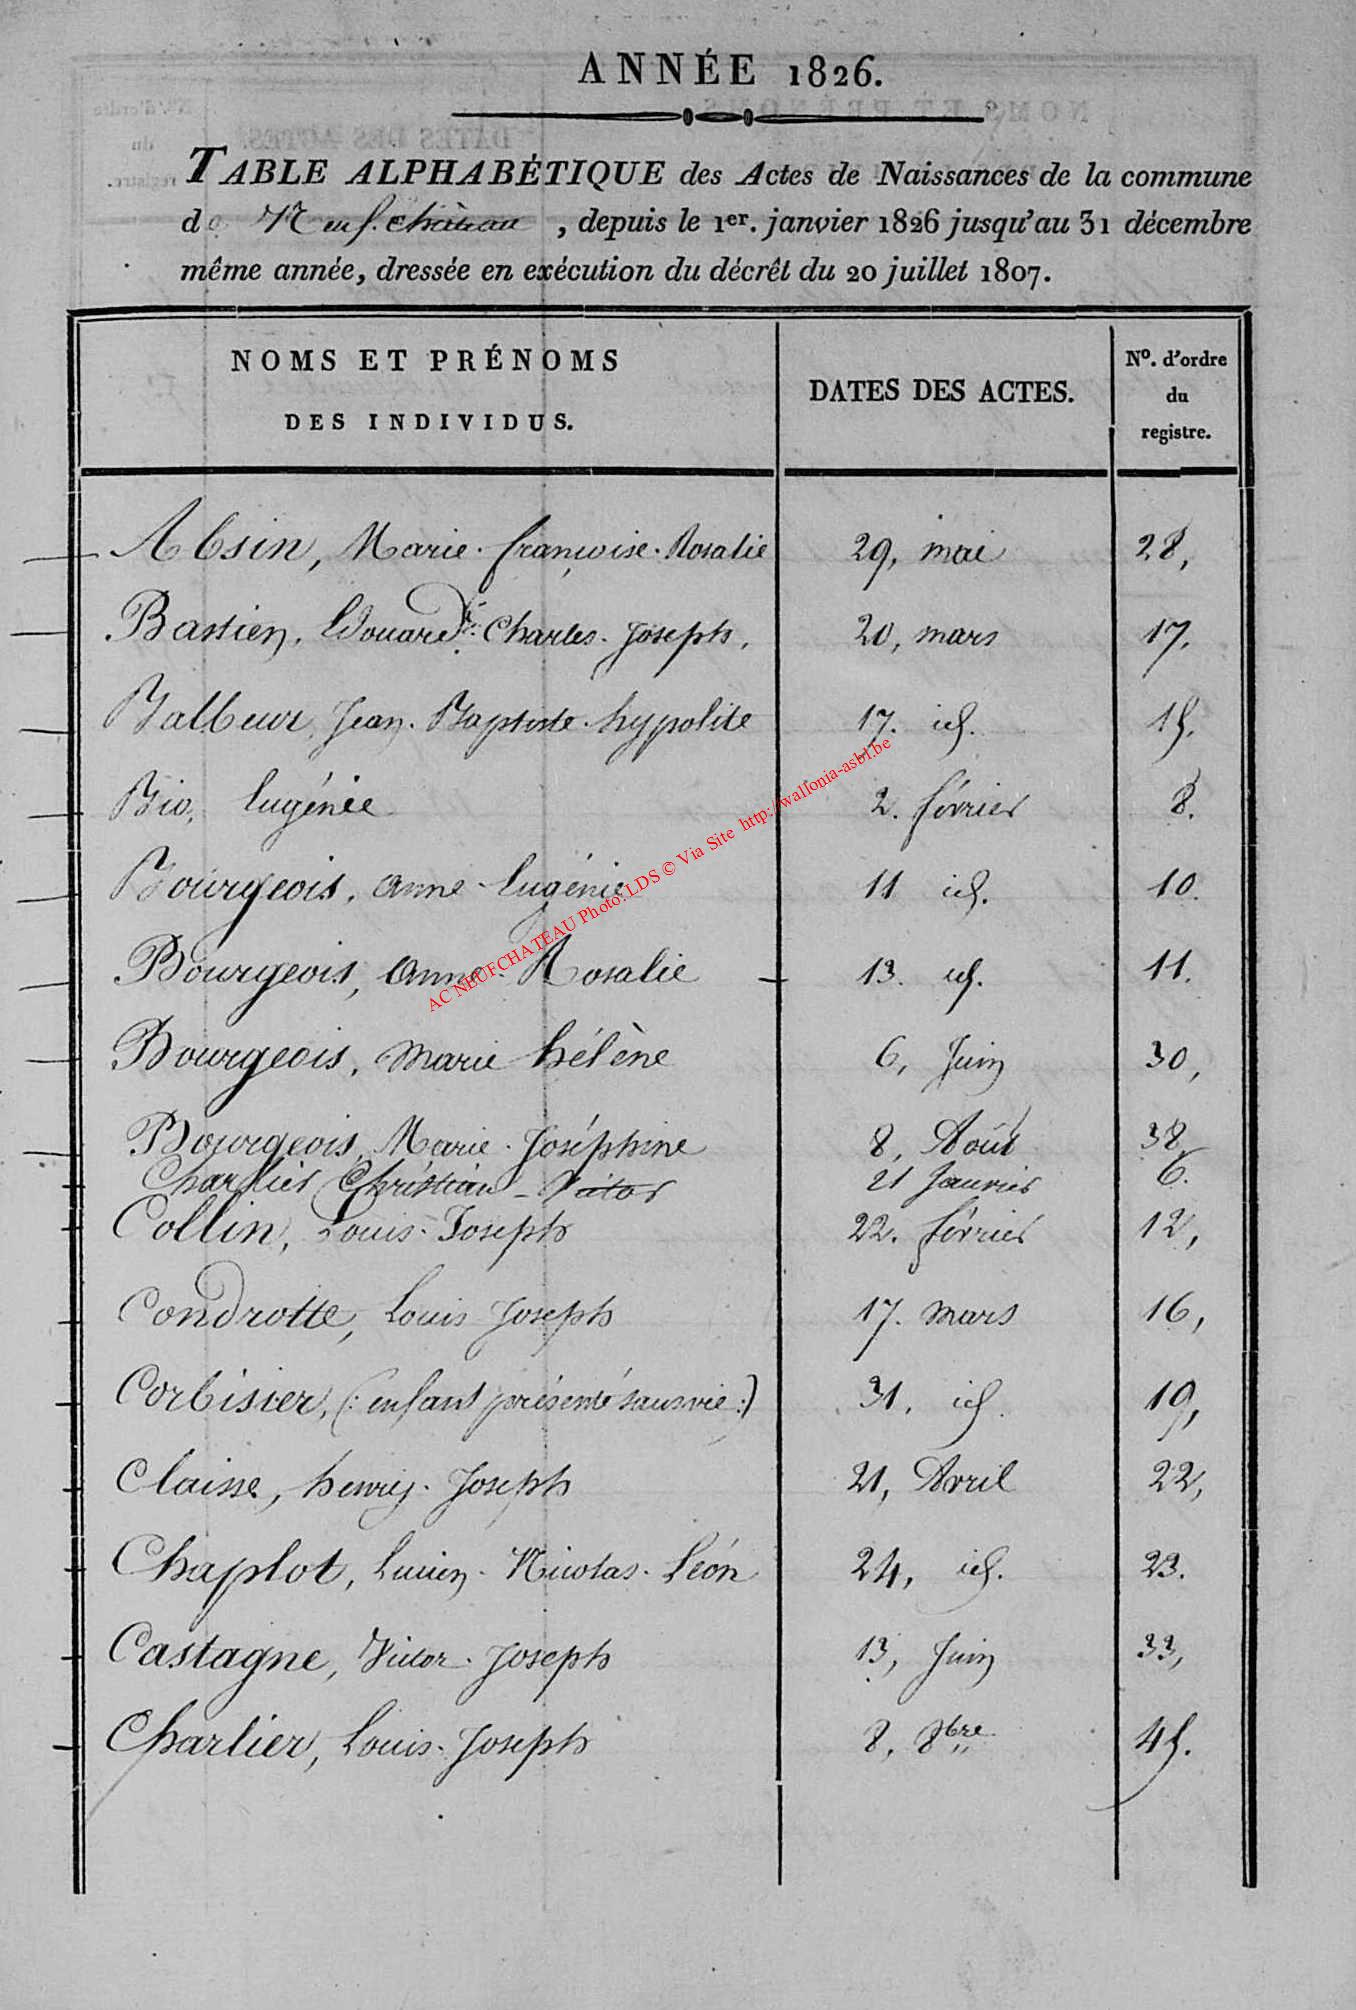 ANNÉE 1826.
TABLE ALPHABÉTIQUE des Actes de Naissances de la commune
de Neufchâteau, depuis le 1er. janvier 1826 jusqu'au 31 décembre
même année, dressée en exécution du décrêt du 20 juillet 1807.
NOMS ET PRÉNOMS DES INDIVIDUS. DATES DES ACTES. No. d'ordre du registre.
Absin, Marie-françoise-Rosalie 29, mai 28,
Bastien, Edouard-Charles-Joseph, 20, mars 17.
Balbeur, Jean-Baptiste-hypolite 17. id. 15.
Bio, Eugénie 2. février 8.
Bourgeois, anne-Eugénie 11 id. 10.
Bourgeois, anne-Rosalie 13. id. 11.
Bourgeois, marie hélène 6, Juin 30,
Bourgeois, Marie-Joséphine 8, Août 38
Charlier Christian-Victor 21 Janvier 6.
Collin, Louis-Joseph 22. février 12,
Condrotte, Louis Joseph 17. mars 16,
Corbisier, (: enfant présenté sans vie :) 31, id. 19,
Claisse, henry-Joseph 21, Avril 22,
Chaplot, Lucien-Nicolas-Léon 24, id. 23.
Castagne, Victor-Joseph 13, Juin 33,
Charlier, Louis-Joseph 8, 8bre 45.
AC NEUFCHATEAU Photo: LDS © Via Site http://wallonia-asbl.be